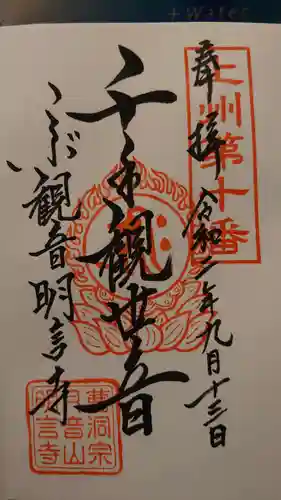 奉拝
上州第十番
令和二年九月十三日
千手観世音
こぶ観音明言寺
曹洞宗
音山
言寺
+Water